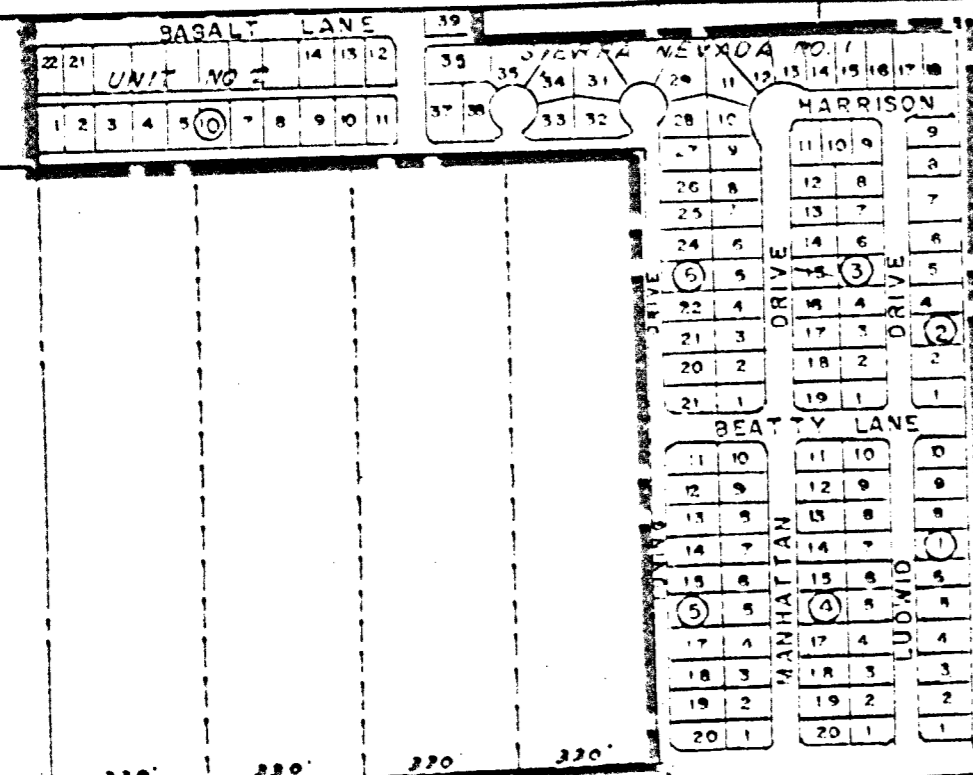 BASALT LANE
39
22 21
14 13 12
UNIT NO 2
1 2 3 4 5 10 7 8 9 10 11
35
37 38
SIERRA NEVADA NO. 1
35 34 31 29 11 12 13 14 15 16 17 18
33 32 28 10
HARRISON
27 9
26 8
25
24 6
6 5
22 4
21 3
20 2
21 1
DRIVE
DRIVE
11 10 9
12 8
13 7
14 6
15 3
16 4
17 3
18 2
19 1
DRIVE
9
8
7
6
5
4
2
2
1
BEATTY LANE
11 10
12 9
13 8
14 7
15 6
5 5
17 4
18 3
19 2
20 1
MANHATTAN
11 10
12 9
13 8
14 7
15 6
4 5
17 4
18 3
19 2
20 1
LUDWIG
10
9
8
1
6
5
4
3
2
1
330' 330' 330 330'